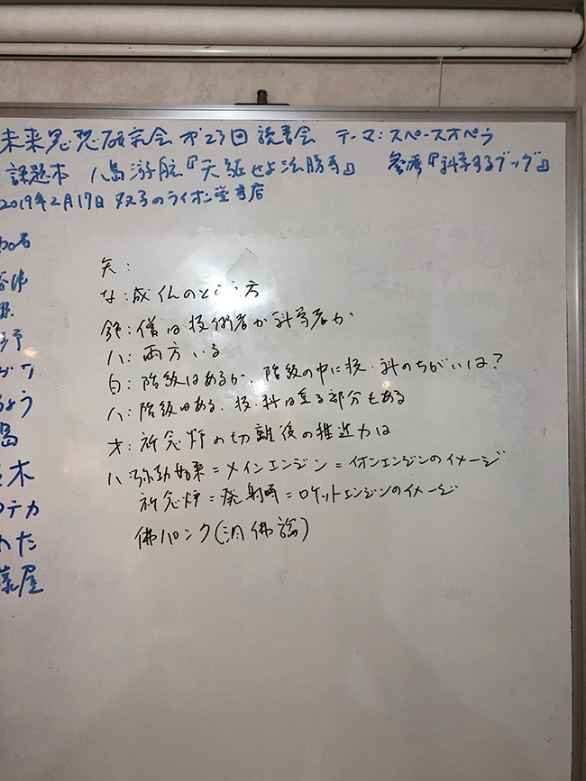 未来思想研究会 第23回 読書会 テーマ:スペースオペラ
課題本 八島游舷『天駆せよ法勝寺』 参考『科学するブッダ』
2019年2月17日 双子のライオン堂書店
加石
島
木
テカ
わた
藤屋
矢:
な:成仏のとらえ方
鈴:僧は技術者か科学者か
ハ:両方いる
白:階級はあるか、階級の中に技・科のちがいは?
ハ:階級はある、技・科は重る部分もある
才:祈念炉の切離後の推進力は
ハ:弥勒如来=メインエンジン=イオンエンジンのイメージ
祈念炉=発射時=ロケットエンジンのイメージ
佛パンク(汎佛論)